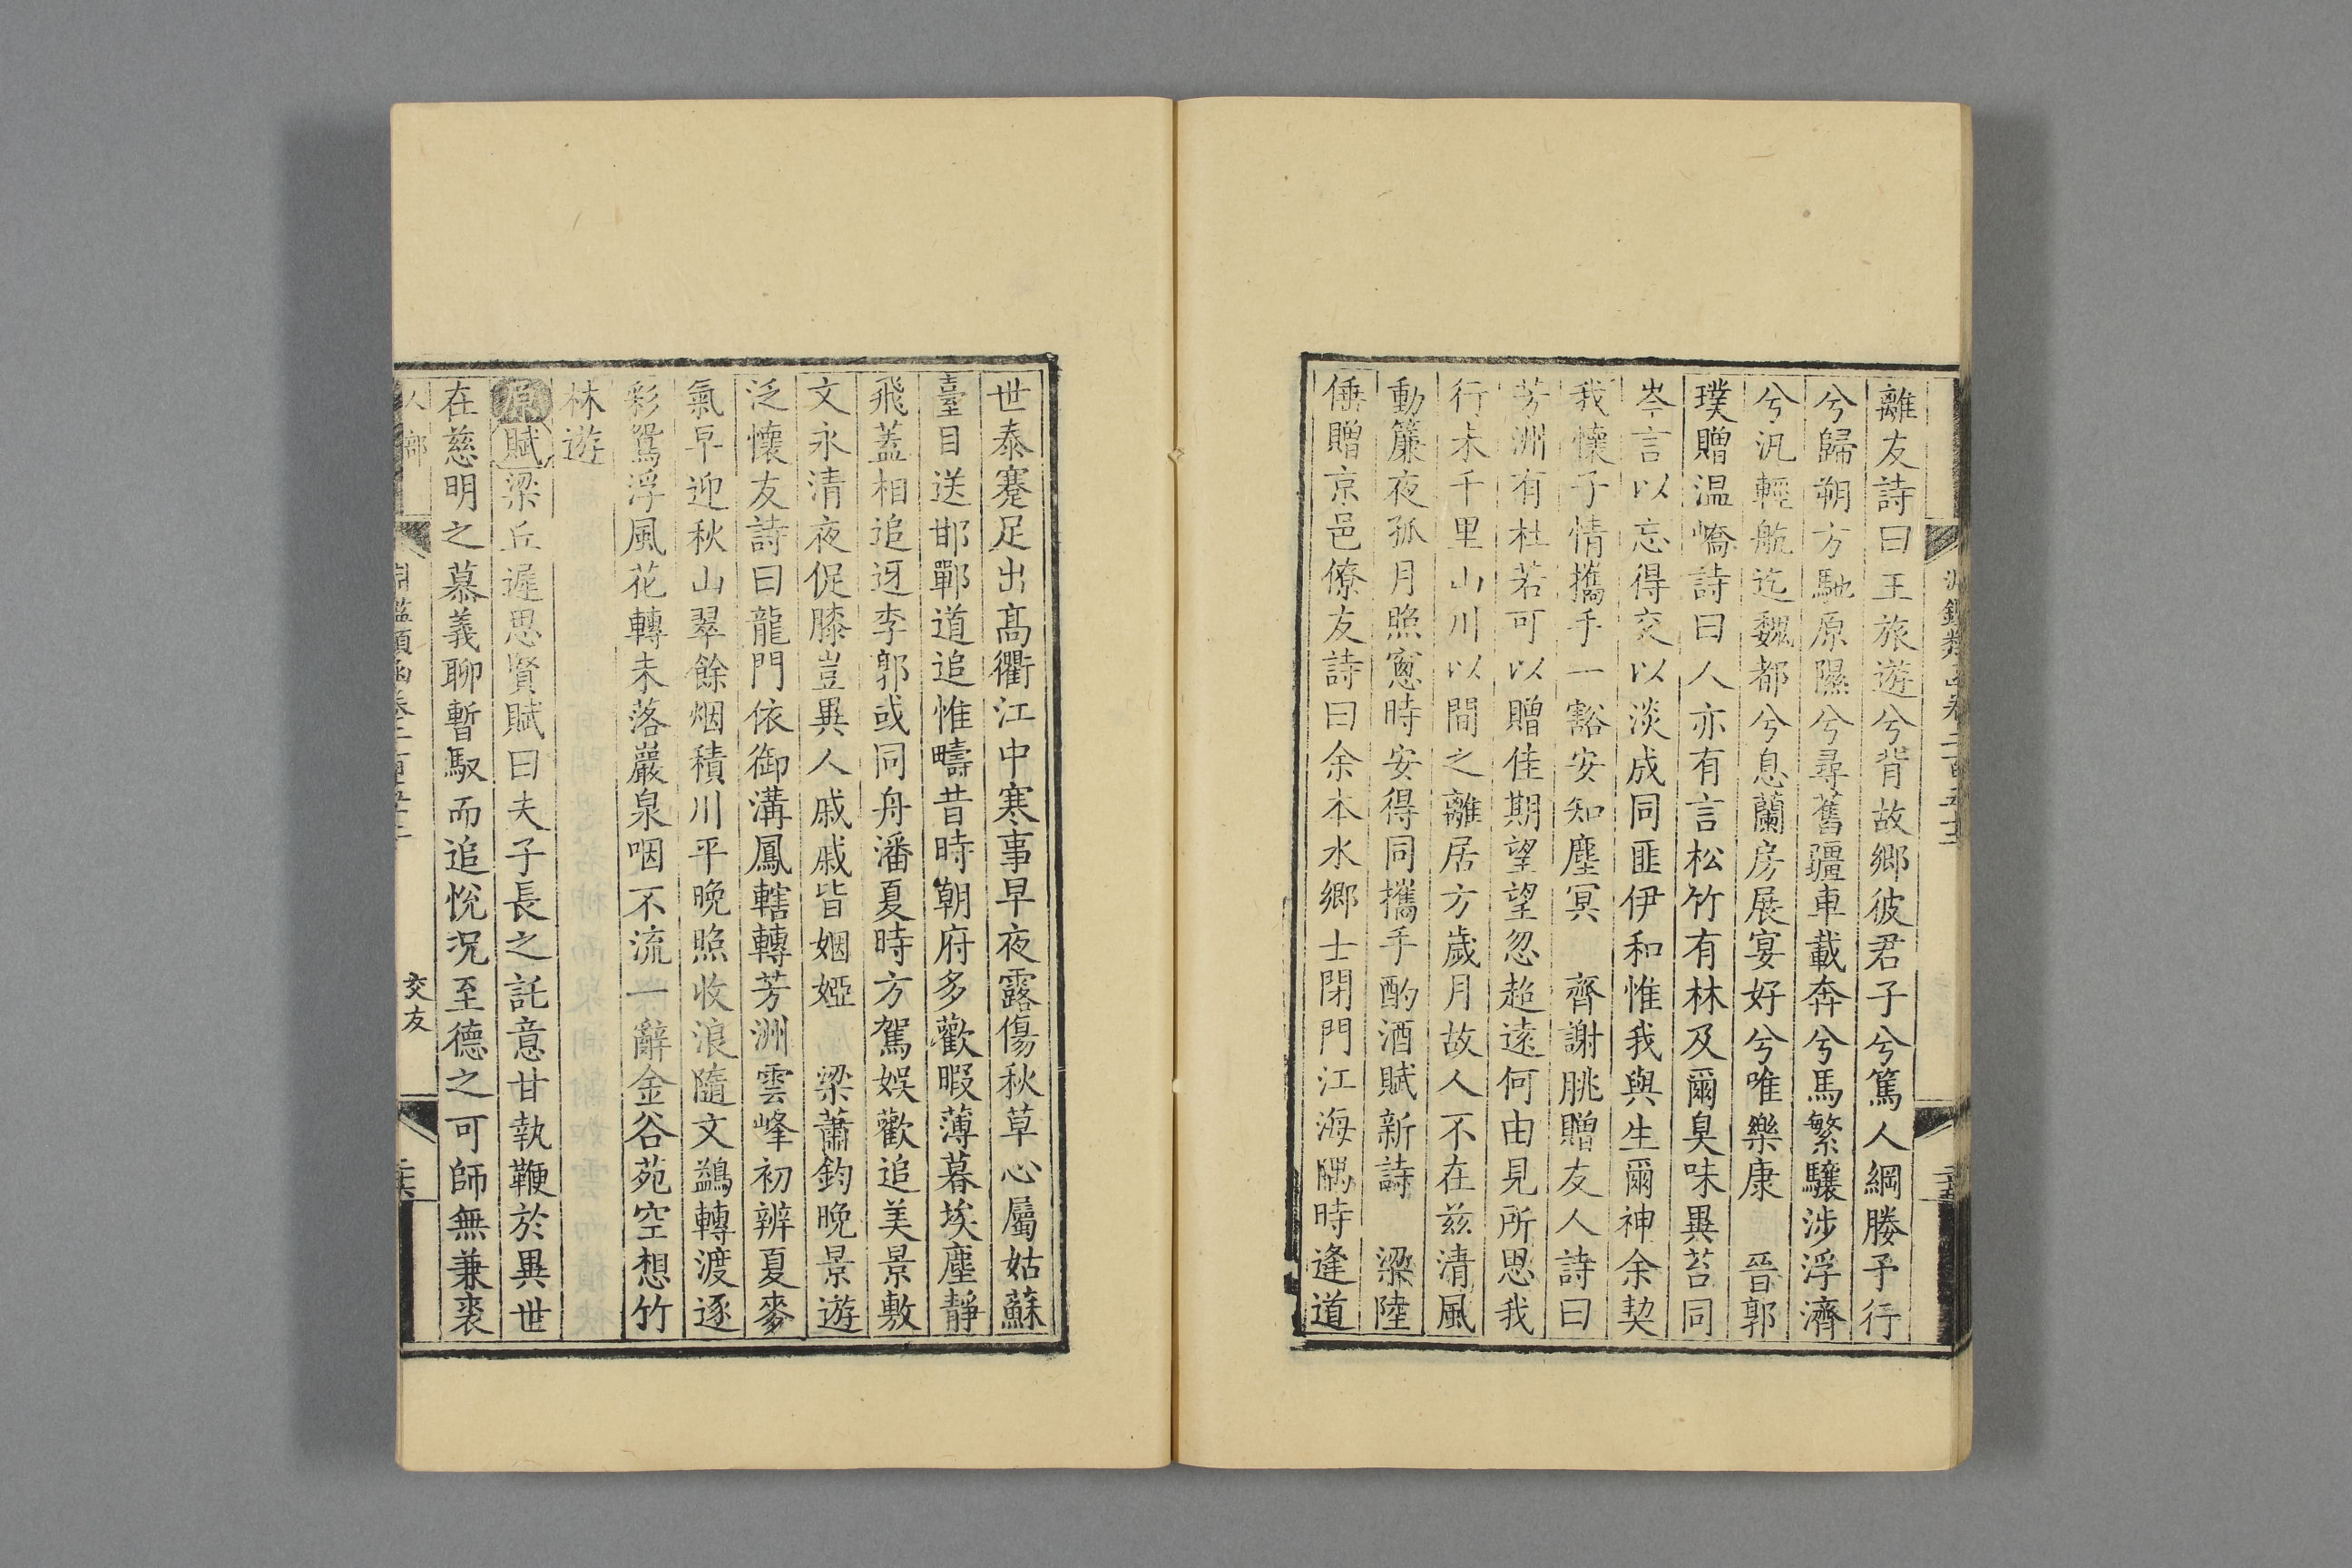 離友詩曰王旅遊兮背故鄉彼君子兮篤人綱媵予行
兮歸朔方馳原隰兮尋舊疆車載奔兮馬繁驤涉浮濟
兮汎輕航迄魏都兮息蘭房展宴好兮唯樂康　晉郭
璞贈温嶠詩曰人亦有言松竹有林及爾臭味異苔同
岑言以忘得交以淡成同匪伊和惟我與生爾神余契
我懷子情攜手一豁安知塵冥　齊謝朓贈友人詩曰
芳洲有杜若可以贈佳期望望忽超遠何由見所思我
行未千里山川以間之離居方歲月故人不在兹清風
動簾夜孤月照窻時安得同攜手酌酒賦新詩　梁陸
倕贈京邑僚友詩曰余本水鄉士閉門江海隅時逢道
世泰蹇足出高衢江中寒事早夜露傷秋草心屬姑蘇
臺目送邯鄲道追惟疇昔時朝府多歡暇薄暮埃塵靜
飛蓋相追迓李郭或同舟潘夏時方駕娛歡追美景敷
文永清夜促膝豈異人戚戚皆姻婭　梁蕭鈞晚景遊
泛懷友詩曰龍門依御溝鳳轄轉芳洲雲峰初辨夏麥
氣早迎秋山翠餘烟積川平晚照收浪隨文鷁轉渡逐
彩鴛浮風花轉未落巖泉咽不流一辭金谷苑空想竹
林遊
原賦梁丘遲思賢賦曰夫子長之託意甘執鞭於異世
在慈明之慕義聊暫馭而追悅況至德之可師無兼裘
交友